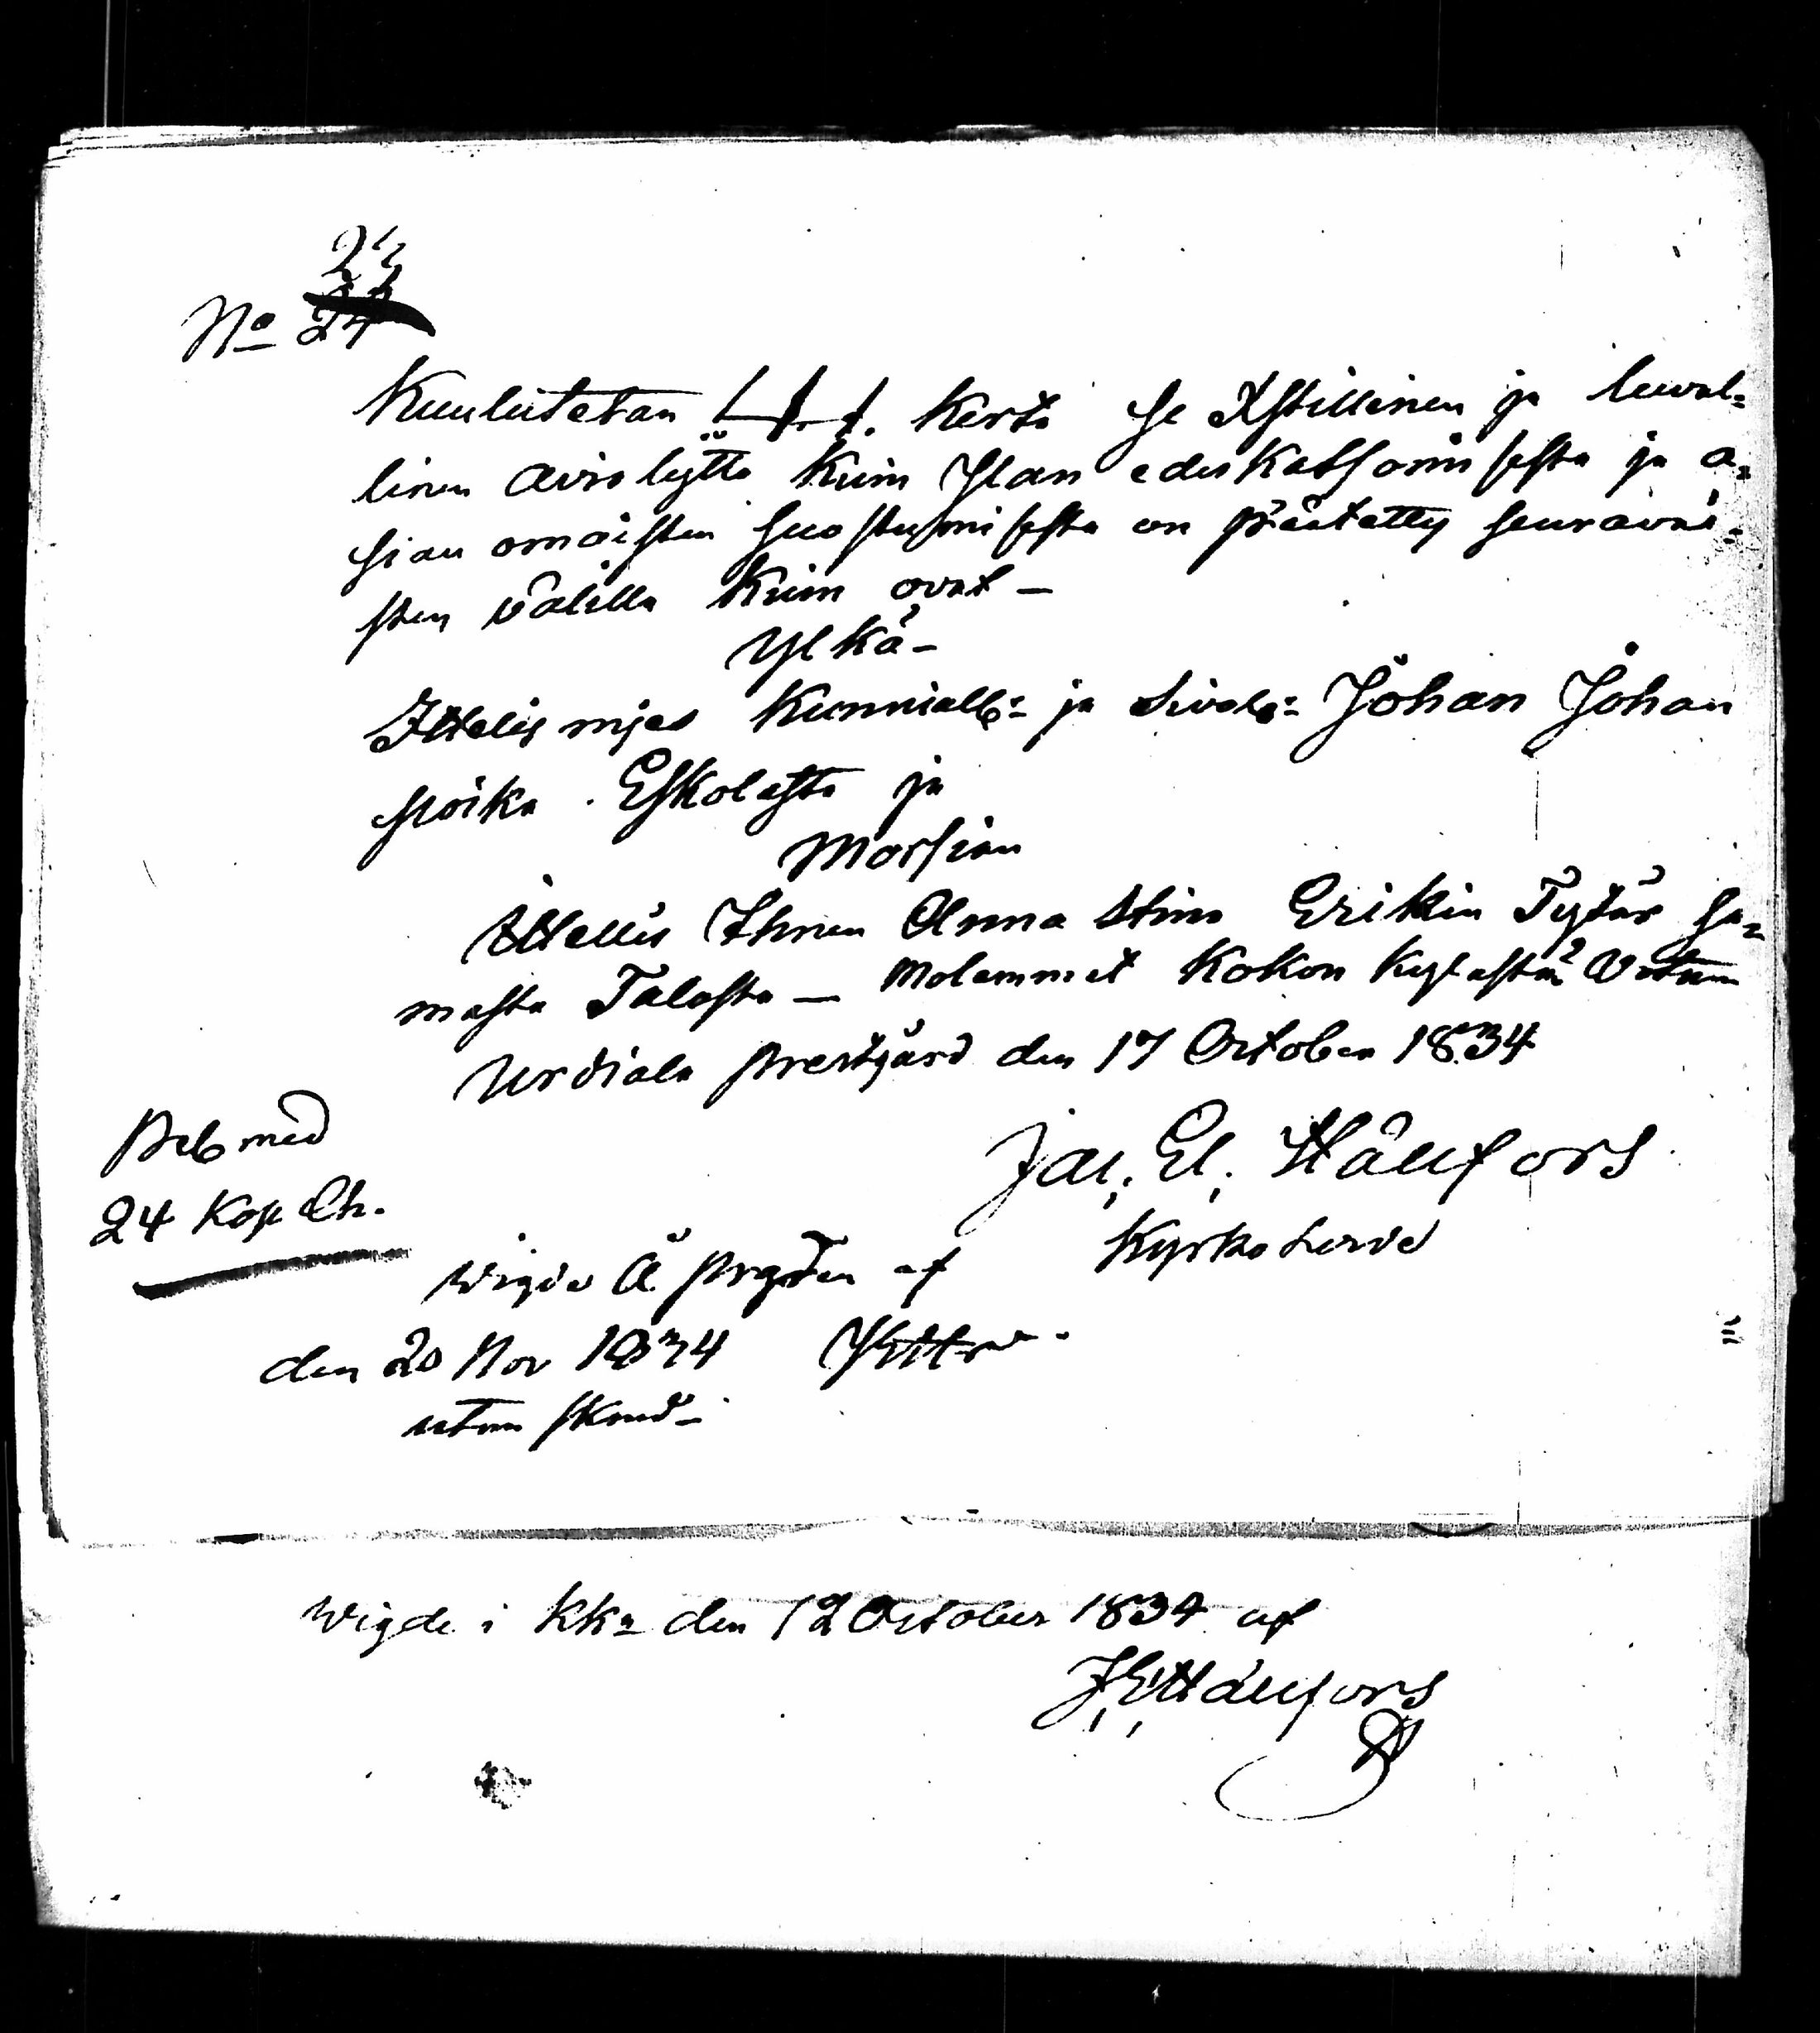 24
No 24
Kuulutetan 1. 1. 1. Kerta se Xstillinen ja luwal=
linen aviokytto kuin Jlan edeskatsomisesta ja a=
sian omaisten suostumisesta on päätetty seuravai=
sten välillä kuin ovat —
Ylkä —
Ittelis mjes Kunniall:= ja Siviäl:= Johan Johan
spoika Eskolasta ja
Morsian
Ittellis Ihnen Anna Stina Erikin Tytär sa=
masta Talosta — Molemmet Kokon Kylästä
Urdiala prestgård den 17 October 1834
Jac. El. Hällfors
Kyrkoherde
Bet med
24 Kop Ch.
Wigde Å prgden af
den 20 Nov 1834
utan skrud —
Wigde i KKa den 12 October 1834 af
J. E. Hällfors